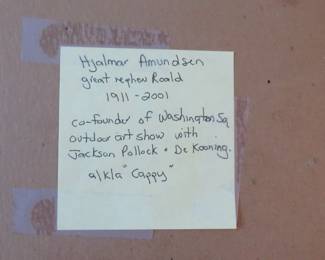 Hjalmar Amundsen
great nephew Roald
1911-2001
co-founder of Washington Sq
outdoor art show with
Jackson Pollock + De Kooning.
a/k/a "Cappy"